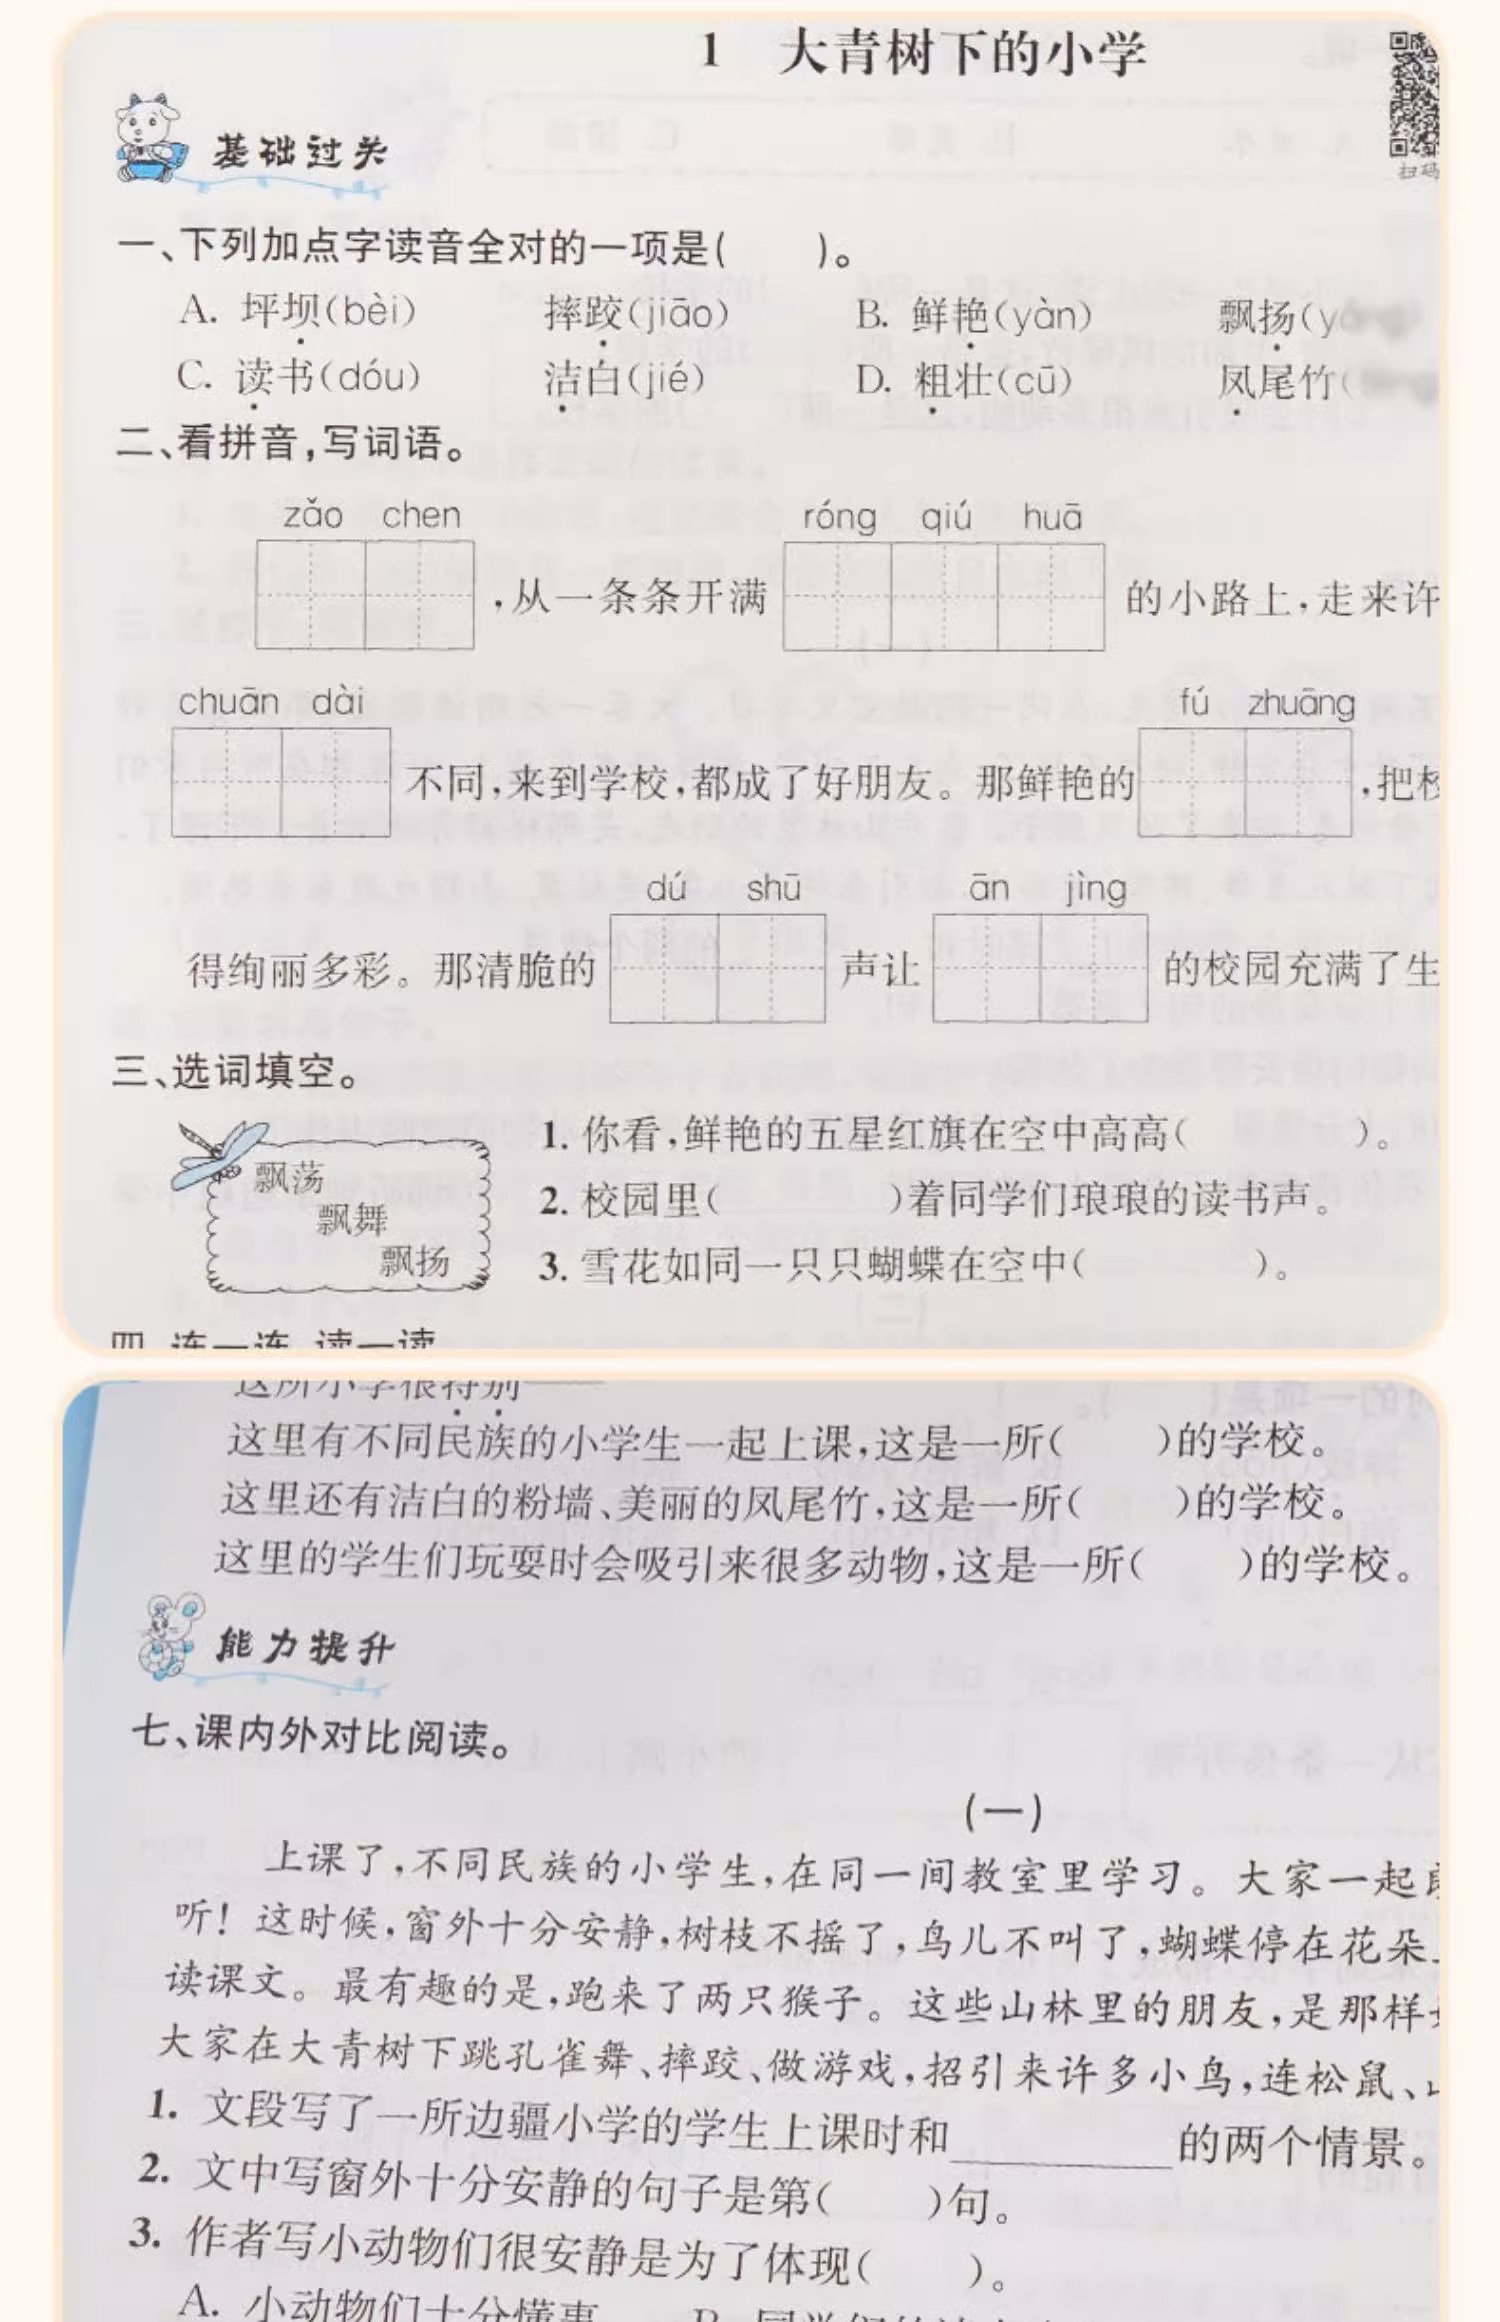 1 大青树下的小学
扫码
基础过关
一、下列加点字读音全对的一项是(　　)。
A. 坪坝(bèi)　摔跤(jiāo)　B. 鲜艳(yàn)　飘扬(y
C. 读书(dóu)　洁白(jié)　D. 粗壮(cū)　凤尾竹(
二、看拼音,写词语。
zǎo chen　róng qiú huā
,从一条条开满　的小路上,走来许
chuān dài　fú zhuāng
不同,来到学校,都成了好朋友。那鲜艳的　,把校
dú shū　ān jìng
得绚丽多彩。那清脆的　声让　的校园充满了生
三、选词填空。
飘荡
飘舞
飘扬
1. 你看,鲜艳的五星红旗在空中高高(　　)。
2. 校园里(　　)着同学们琅琅的读书声。
3. 雪花如同一只只蝴蝶在空中(　　)。
四、连一连,读一读
这所小学很特别——
这里有不同民族的小学生一起上课,这是一所(　　)的学校。
这里还有洁白的粉墙、美丽的凤尾竹,这是一所(　　)的学校。
这里的学生们玩耍时会吸引来很多动物,这是一所(　　)的学校。
能力提升
七、课内外对比阅读。
(一)
上课了,不同民族的小学生,在同一间教室里学习。大家一起
听！这时候,窗外十分安静,树枝不摇了,鸟儿不叫了,蝴蝶停在花朵
读课文。最有趣的是,跑来了两只猴子。这些山林里的朋友,是那样
大家在大青树下跳孔雀舞、摔跤、做游戏,招引来许多小鸟,连松鼠、
1. 文段写了一所边疆小学的学生上课时和________的两个情景。
2. 文中写窗外十分安静的句子是第(　　)句。
3. 作者写小动物们很安静是为了体现(　　)。
A. 小动物们十分懂事　B.